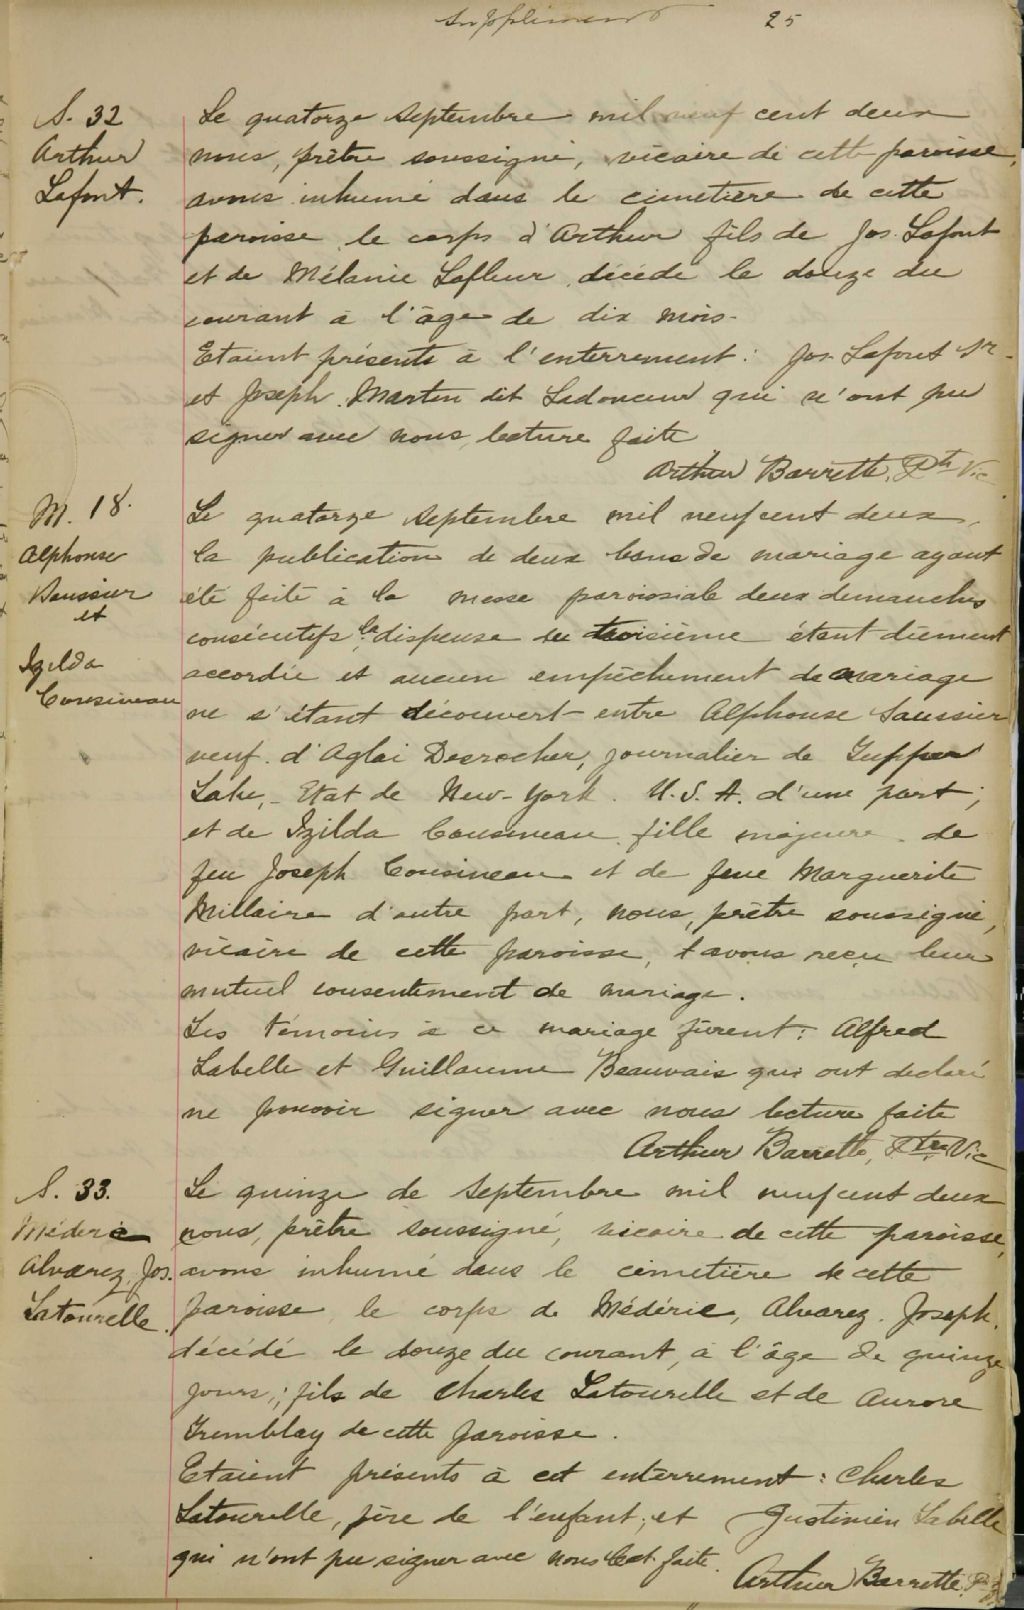 Supplément 25
S. 32
Arthur
Lafont.
Le quatorze septembre mil neuf cent deux
nous, prêtre soussigné, vicaire de cette paroisse,
avons inhumé dans le cimetière de cette
paroisse le corps d'Arthur fils de Jos. Lafont
et de Mélanie Lafleur décédé le douze du
courant à l'âge de dix mois.
Etaient présents à l'enterrement: Jos. Lafont
et Joseph Martin dit Ladouceur qui n'ont pu
signer avec nous lecture faite
Arthur Barrette, Ptre Vic
M. 18.
Alphonse
Saussier
et
Izilda
Cousineau
Le quatorze septembre mil neuf cent deux,
la publication de deux bans de mariage ayant
été faite à la messe paroissiale deux dimanches
consécutifs la dispense du troisième étant dûment
accordée et aucun empêchement de mariage
ne s'étant découvert entre Alphonse Saussier
veuf d'Aglaé Desrocher, journalier de Tupper
Lake, Etat de New-York. U.S.A. d'une part;
et de Izilda Cousineau fille majeure de
feu Joseph Cousineau et de feue Marguerite
Millaire d'autre part, nous, prêtre soussigné,
vicaire de cette paroisse, avons reçu leur
mutuel consentement de mariage.
Les témoins à ce mariage furent: Alfred
Labelle et Guillaume Beauvais qui ont déclaré
ne pouvoir signer avec nous lecture faite
Arthur Barrette, Ptre Vic
S. 33.
Méderic
Alvarez, Jos.
Latourelle.
Le quinze de septembre mil neuf cent deux
nous, prêtre soussigné, vicaire de cette paroisse,
avons inhumé dans le cimetière de cette
paroisse le corps de Médéric, Alvarez, Joseph,
décédé le douze du courant, à l'âge de quinze
jours; fils de Charles Latourelle et de Aurore
Tremblay de cette paroisse.
Etaient présents à cet enterrement: Charles
Latourelle, père de l'enfant; et Justinien Labelle
qui n'ont pu signer avec nous lect. faite.
Arthur Barrette,